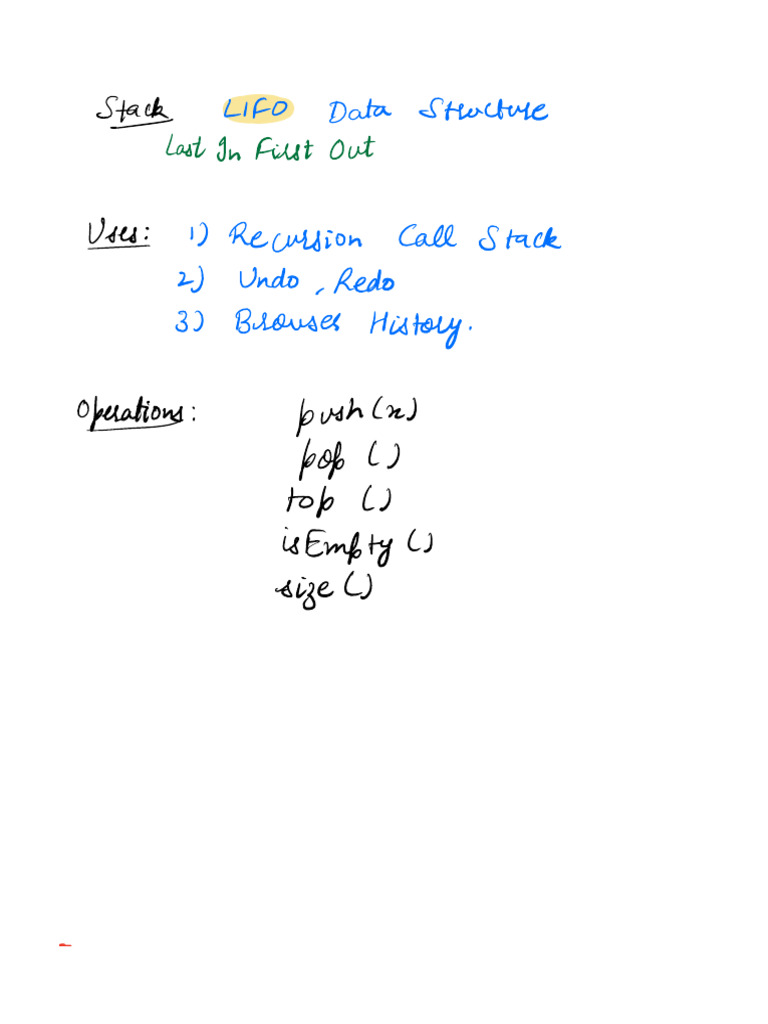 Stack LIFO Data Structure
Last In First Out
Uses: 1) Recursion Call Stack
2) Undo, Redo
3) Browser History.
Operations: push(x)
pop ()
top ()
isEmpty ()
size ()